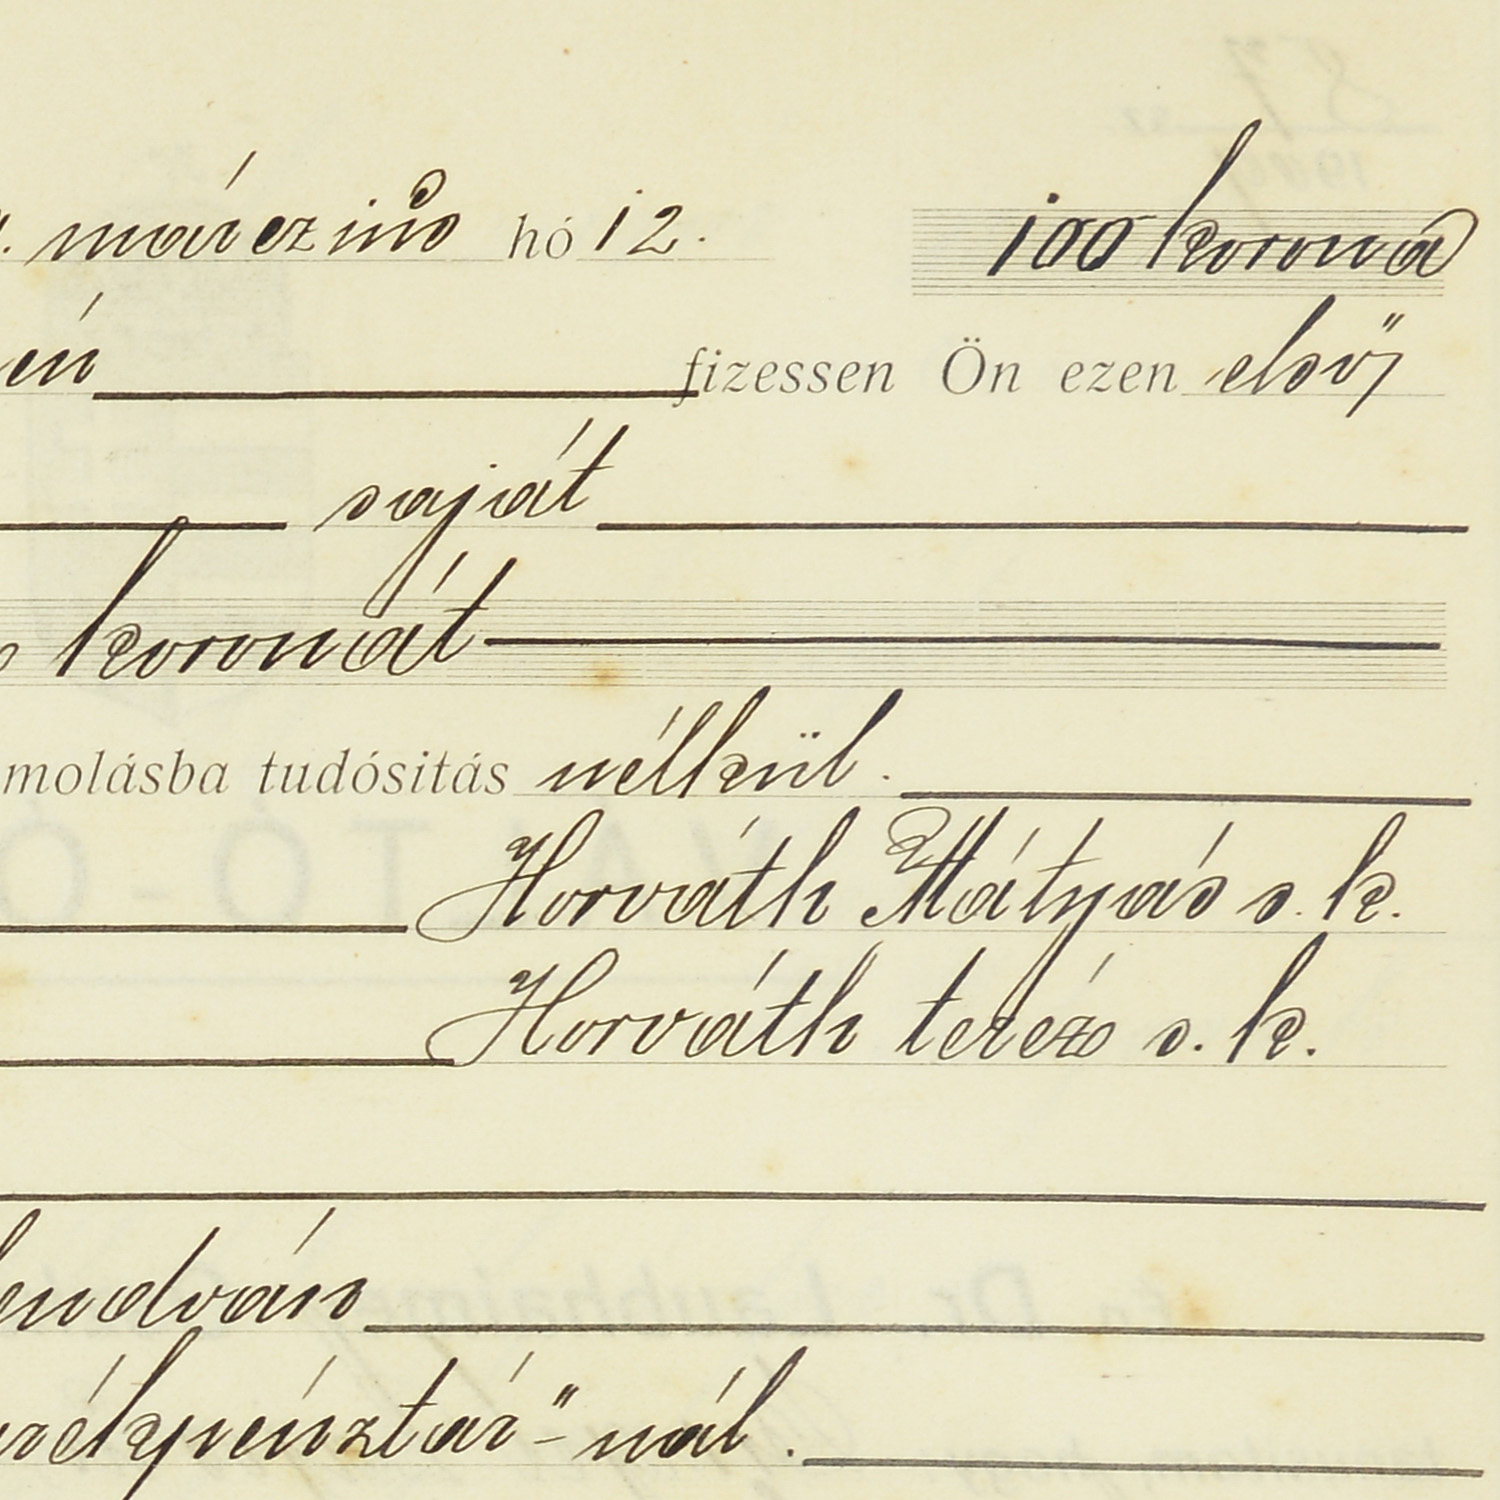 márczius hó 12. 100 korona
én fizessen Ön ezen első
saját
koronát
molásba tudósitás nélkül.
Horváth Mátyás s. k.
Horváth teréz s. k.
lendván
rékpénztár"-nál.